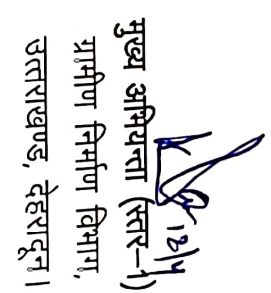 18/4
मुख्य अभियन्ता (स्तर-1)
ग्रामीण निर्माण विभाग,
उत्तराखण्ड, देहरादून।